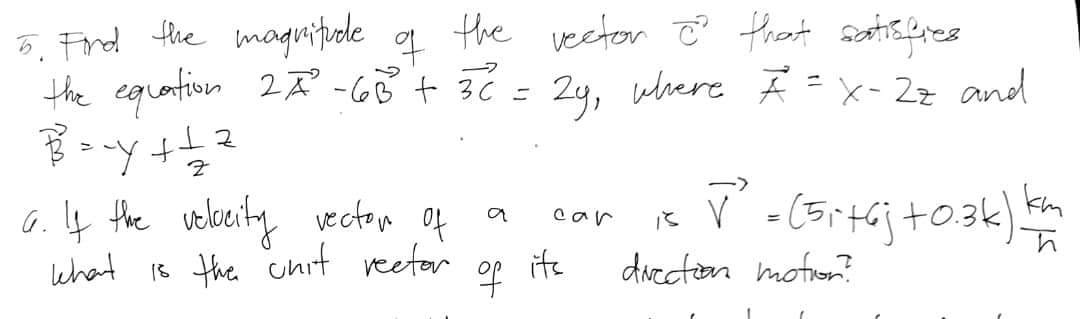 5. Find the magnitude of the vector C⃗ that satisfies
the equation 2A⃗ - 6B⃗ + 3C⃗ = 2y, where A⃗ = x - 2z and
B⃗ = -y + 1/2 z
6. If the velocity vector of a car is V⃗ = (5i + 6j + 0.3k) km/h
what is the unit vector of its direction motion?